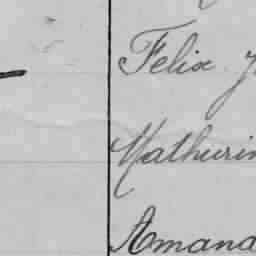 Felix
Mathurin
Amand